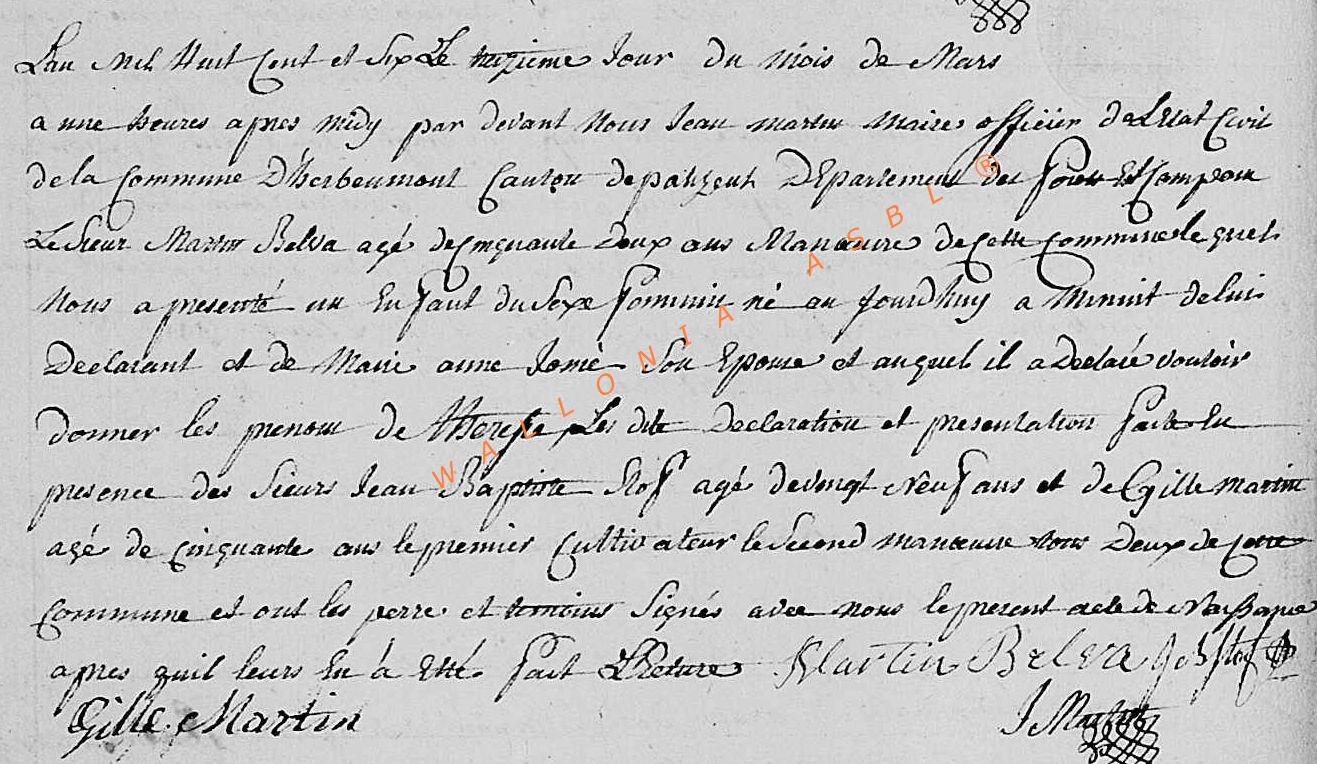 L'an Mil Huit Cent et Six Le treizieme Jour du Mois de Mars
a une heures apres Midy par devant Nous Jean martin Maire officier De L'Etat Civil
de la Commune D'herbeumont Canton de paliseul DEpartement des
Le Sieur Martin Belva agé de Cinquante Deux ans Manœuvre de Cette Commune lequel
Nous a presenté un Enfant du Sexe feminin né au jourdhuy a Minuit de lui
Declarant et de Marie anne Jomé Son Epouse et auquel il a Declaré vouloir
donner les prenom de Therese Les dite Declaration et presentation faite En
presence des Sieurs Jean Baptiste Stof agé de vingt Neuf ans et de Gille martin
agé de Cinquante ans le premier Cultivateur le Second manœuvre tous Deux de Cette
Commune et ont les perre et temoins Signés avec nous le present acte de Naissance
apres quil leurs En à Etté fait Lecture Martin Belva J.b Stof
Gille Martin J Martin
WALLONIA ASBL ®